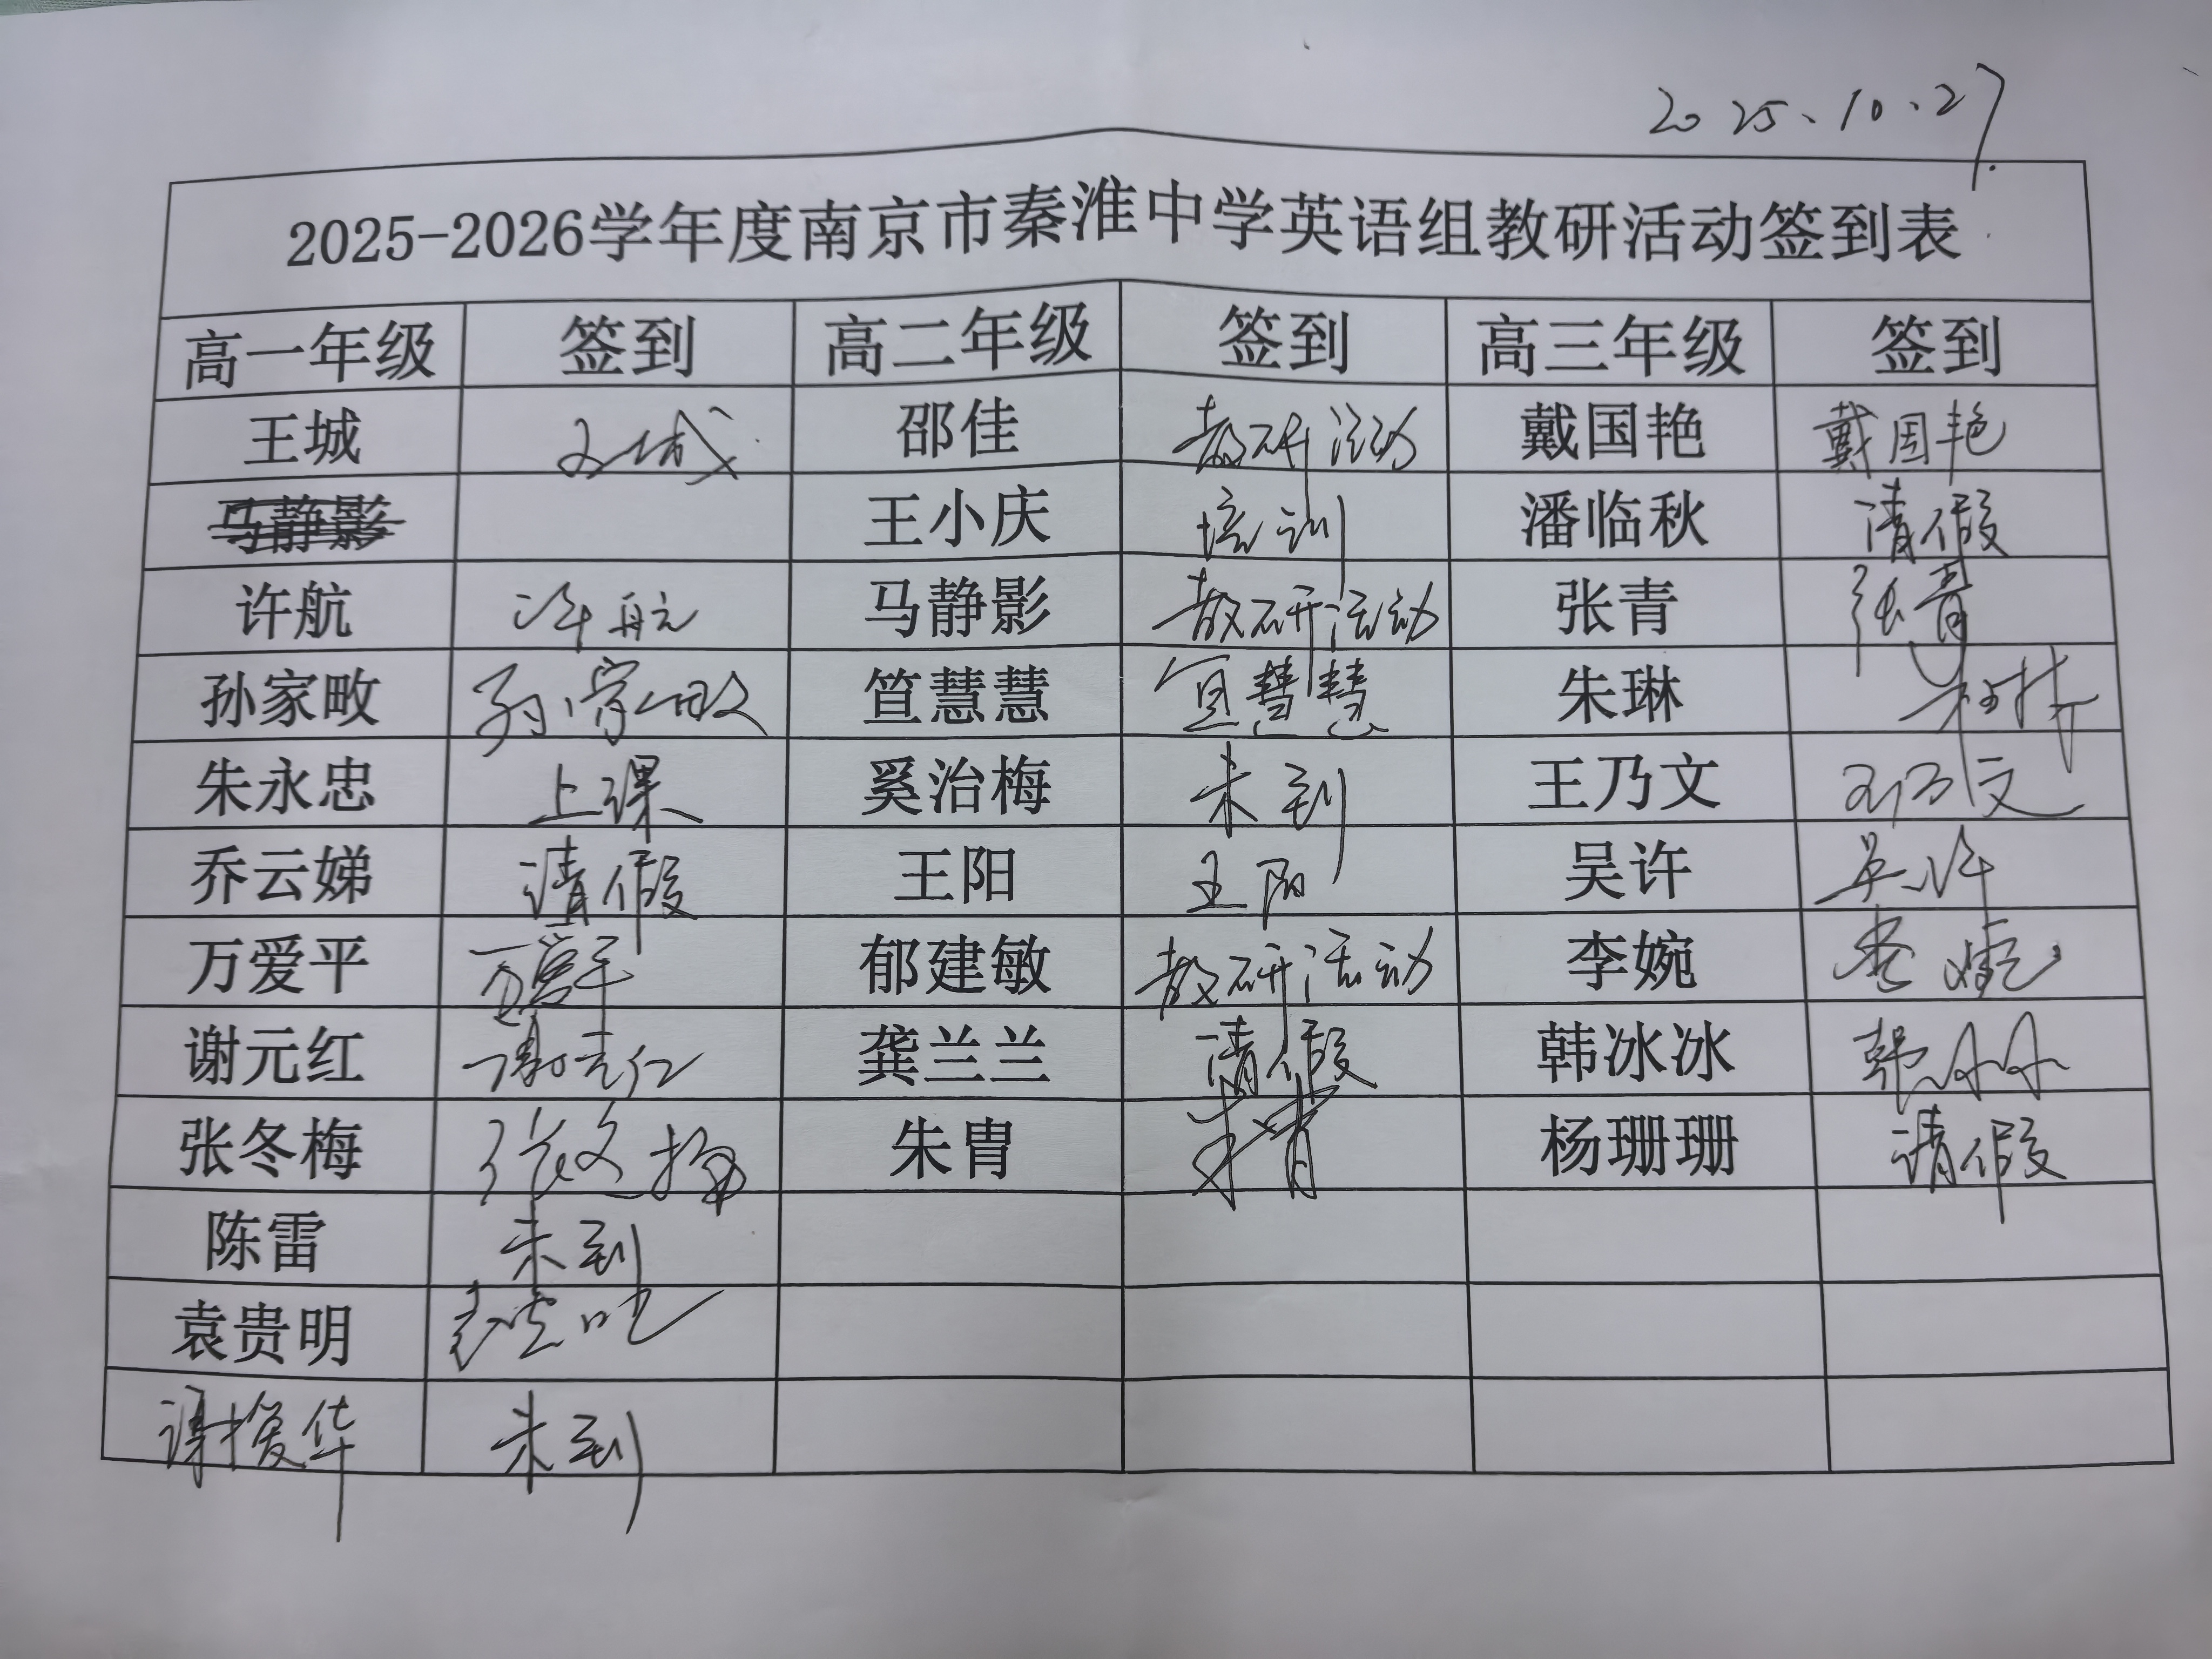 2025.10.27.
2025-2026学年度南京市秦淮中学英语组教研活动签到表
高一年级 签到 高二年级 签到 高三年级 签到
王城 王城 邵佳 教研活动 戴国艳 戴国艳
马静影 王小庆 培训 潘临秋 请假
许航 许航 马静影 教研活动 张青 张青
孙家畋 孙家畋 笪慧慧 笪慧慧 朱琳 朱琳
朱永忠 上课 奚治梅 未到 王乃文 王乃文
乔云娣 请假 王阳 王阳 吴许 吴许
万爱平 万爱平 郁建敏 教研活动 李婉 李婉
谢元红 谢元红 龚兰兰 请假 韩冰冰 韩冰冰
张冬梅 张冬梅 朱胄 朱胄 杨珊珊 请假
陈雷 未到
袁贵明 袁贵明
谢俊华 未到